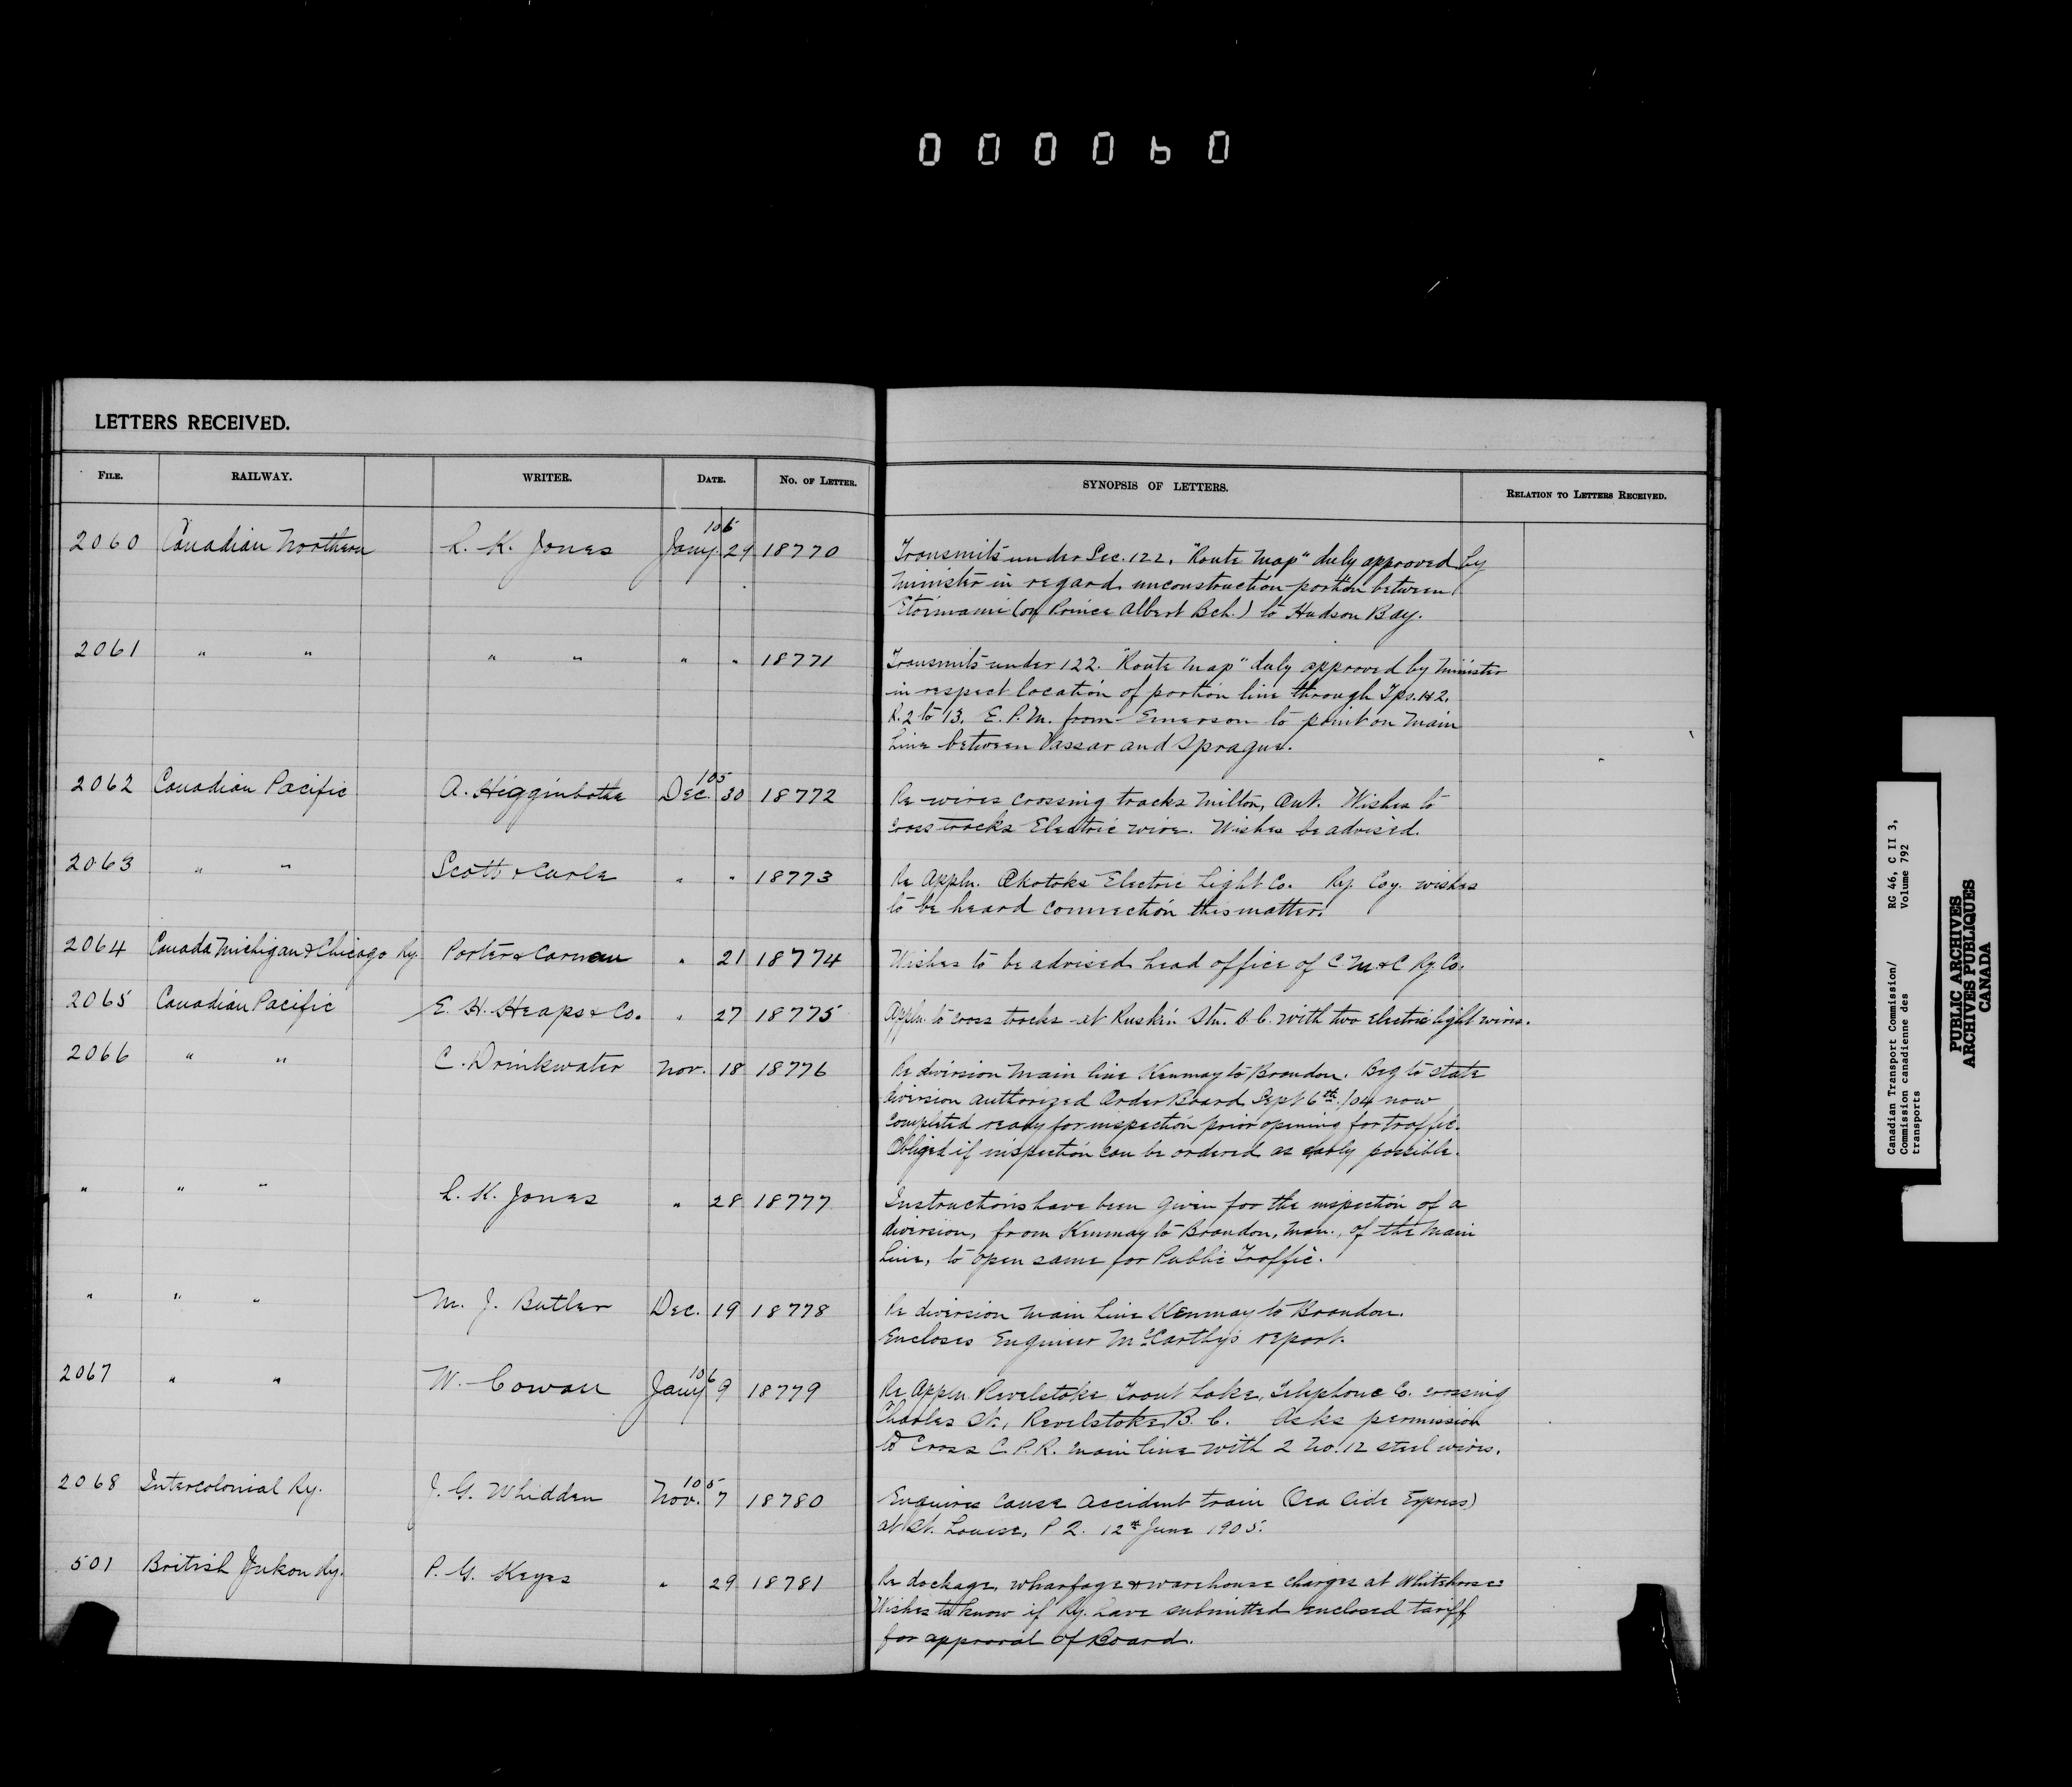 000060
LETTERS RECEIVED.
FILE. RAILWAY. WRITER. DATE. NO. OF LETTER. SYNOPSIS OF LETTERS. RELATION TO LETTERS RECEIVED.
2060 Canadian Northern L. K. Jones Jany. 106 29 18770 Transmits under Sec. 122, "Route Map" duly approved by
Minister in regard unconstruction portion between
Etoimami (on Prince Albert Bch.) to Hudson Bay.
2061 " " " " " " 18771 Transmits under 122. "Route Map" duly approved by Minister
in respect location of portion line through Tps. 1+2,
R. 2 to 13, E. P. M. from Emerson to point on Main
Line between Vassar and Sprague.
2062 Canadian Pacific A. Higginbotha Dec. 105 30 18772 Re wires crossing tracks Milton, Ont. Wishes to
cross tracks Electric wire. Wishes be advised.
2063 " " Scott & Curle " " 18773 Re Appln. Okotoks Electric Light Co. Ry. Coy. wishes
to be heard connection this matter.
2064 Canada Michigan & Chicago Ry. Porter & Carman " 21 18774 Wishes to be advised head office of C. M. & C Ry. Co.
2065 Canadian Pacific E. H. Heaps & Co. " 27 18775 Appln. to cross tracks at Ruskin Stn. B. C. with two electric light wires.
2066 " " C. Drinkwater Nov. 18 18776 Re diversion Main line Kemnay to Brandon. Beg to state
diversion authorized Order Board Sept 6th /04 now
completed ready for inspection prior opening for traffic.
Obliged if inspection can be ordered as early possible.
" " " L. K. Jones " 28 18777 Instructions have been given for the inspection of a
diversion, from Kemnay to Brandon, Man., of the Main
Line, to open same for Public Traffic.
" " " M. J. Butler Dec. 19 18778 Re diversion Main Line Kemnay to Brandon.
Encloses Engineer McCarthy's report.
2067 " " W. Cowan Jany 106 9 18779 Re Appln. Revelstoke Trout Lake, Telephone Co. crossing
Charles St., Revelstoke B. C. Asks permission
to cross C. P. R. main line with 2 No. 12 steel wires.
2068 Intercolonial Ry. J. G. Whidden Nov. 105 7 18780 Enquires cause accident train (Sea Side Express)
at St. Louise, P Q. 12th June 1905.
501 British Yukon Ry. P. G. Keyes " 29 18781 Re dockage, wharfage & warehouse charges at Whitehorse
Wishes to know if Ry. have submitted enclosed tariff
for approval of Board.
Canadian Transport Commission/ RG 46, C II 3,
Commission canadienne des Volume 792
transports
PUBLIC ARCHIVES
ARCHIVES PUBLIQUES
CANADA